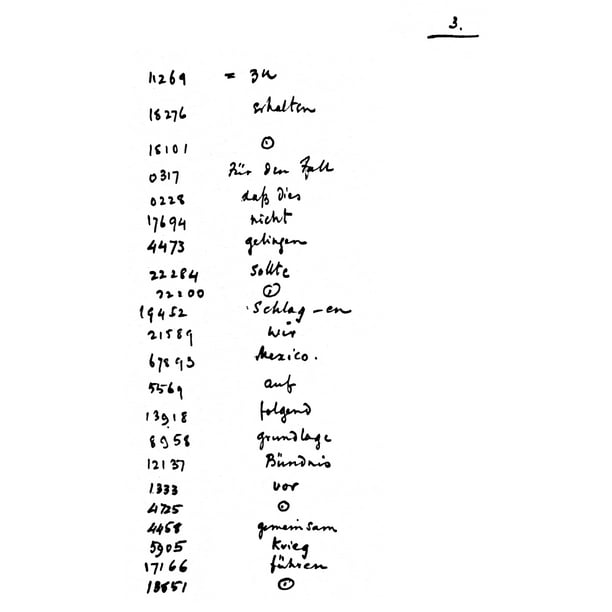 3.
11269 = zu
18276 erhalten
18101 ⊙
0317 Für den Fall
0228 daß dies
17694 nicht
4473 gelingen
22284 sollte
22200 ⊙
19452 Schlag-en
21589 wir
67893 Mexico.
5569 auf
13918 folgend
8958 grundlage
12137 Bündnis
1333 vor
4725 ⊙
4458 gemeinsam
5905 Krieg
17166 führen
13851 ⊙